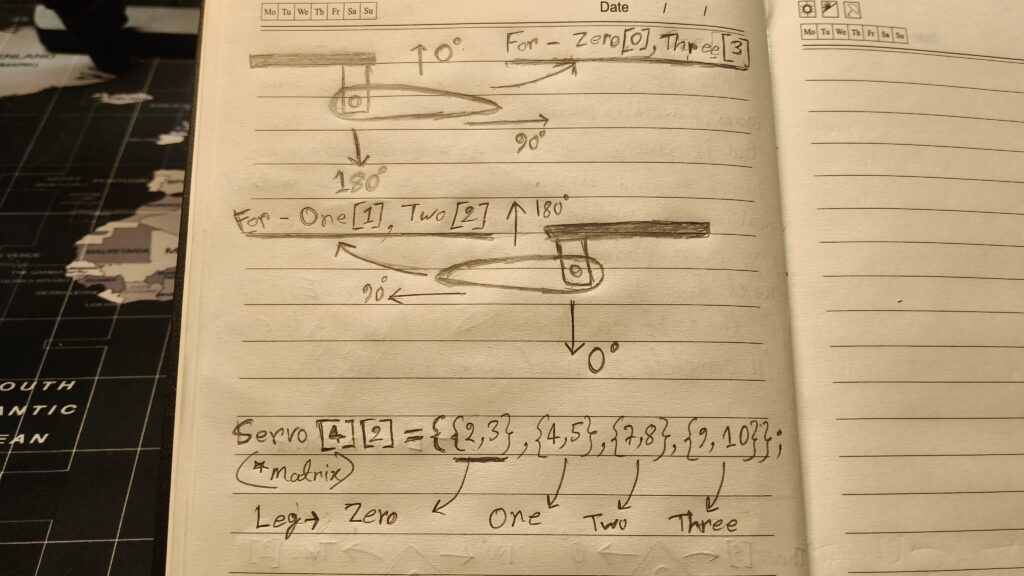 Mo Tu We Th Fr Sa Su
Date / /
Mo Tu We Th Fr Sa Su
0° For - Zero[0], Three[3]
90°
180°
For - One[1], Two[2] 180°
90°
0°
Servo [4][2] = {{2,3},{4,5},{7,8},{9,10}};
(*matrix)
Leg→ Zero One Two Three
OUTH
ANTIC
EAN